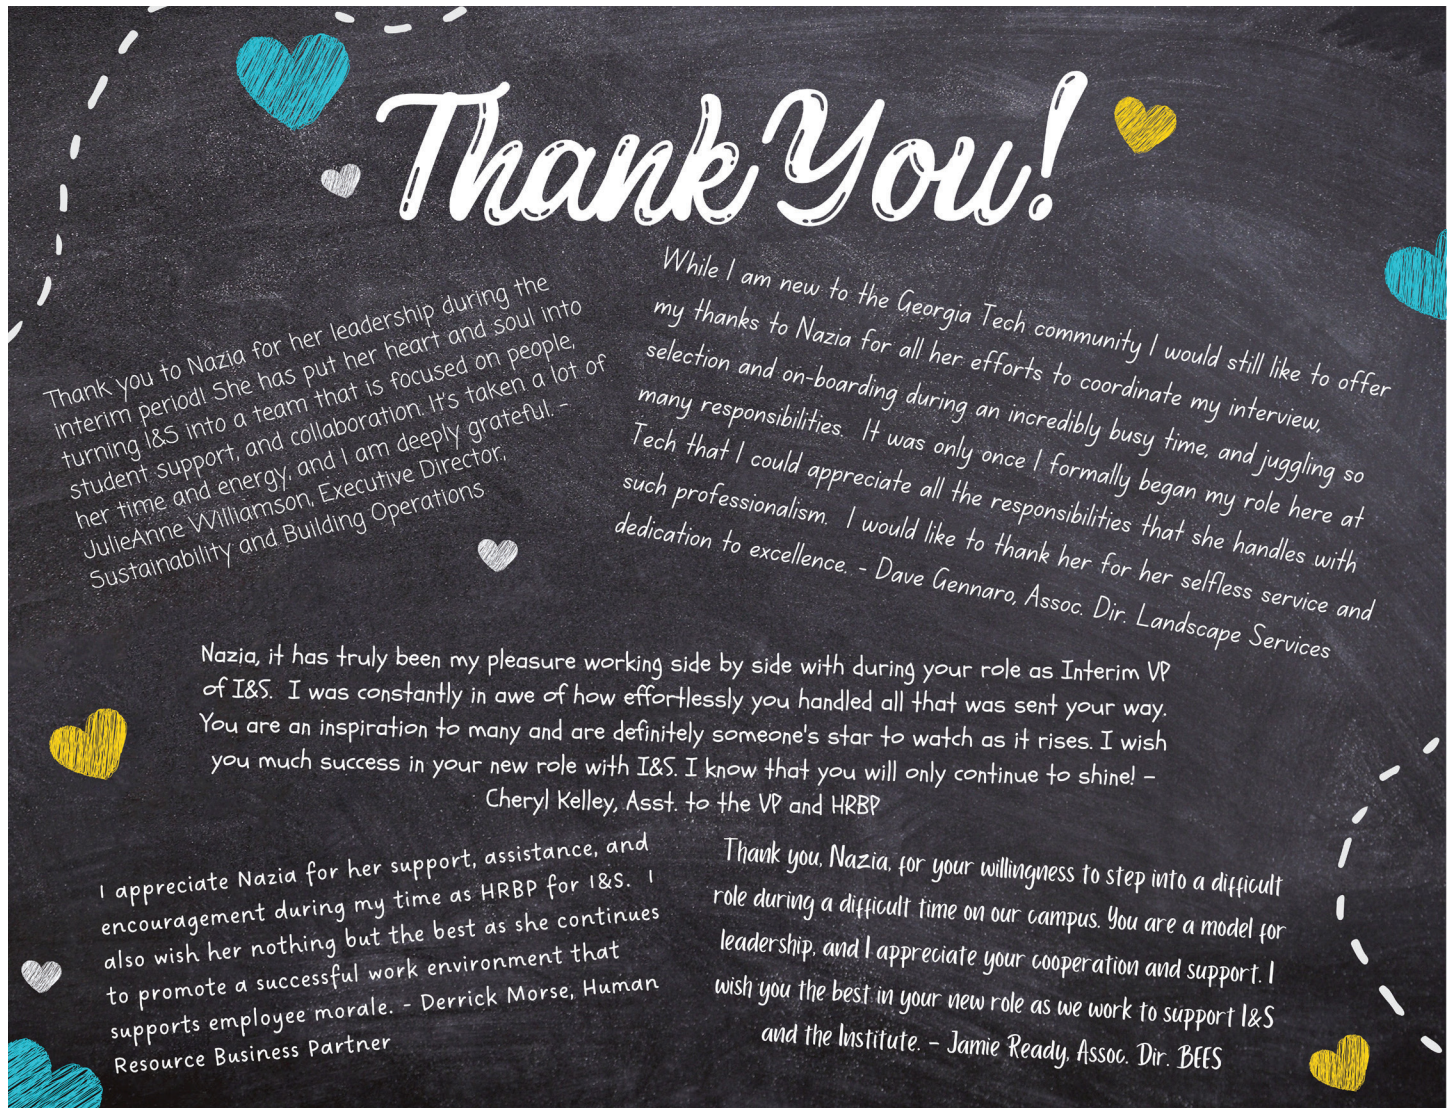 Thank You!
Thank you to Nazia for her leadership during the
interim period! She has put her heart and soul into
turning I&S into a team that is focused on people,
student support, and collaboration. It's taken a lot of
her time and energy, and I am deeply grateful. -
JulieAnne Williamson, Executive Director,
Sustainability and Building Operations
While I am new to the Georgia Tech community I would still like to offer
my thanks to Nazia for all her efforts to coordinate my interview,
selection and on-boarding during an incredibly busy time, and juggling so
many responsibilities. It was only once I formally began my role here at
Tech that I could appreciate all the responsibilities that she handles with
such professionalism. I would like to thank her for her selfless service and
dedication to excellence. - Dave Gennaro, Assoc. Dir. Landscape Services
Nazia, it has truly been my pleasure working side by side with during your role as Interim VP
of I&S. I was constantly in awe of how effortlessly you handled all that was sent your way.
You are an inspiration to many and are definitely someone's star to watch as it rises. I wish
you much success in your new role with I&S. I know that you will only continue to shine! -
Cheryl Kelley, Asst. to the VP and HRBP
I appreciate Nazia for her support, assistance, and
encouragement during my time as HRBP for I&S. I
also wish her nothing but the best as she continues
to promote a successful work environment that
supports employee morale. - Derrick Morse, Human
Resource Business Partner
Thank you, Nazia, for your willingness to step into a difficult
role during a difficult time on our campus. You are a model for
leadership, and I appreciate your cooperation and support. I
wish you the best in your new role as we work to support I&S
and the Institute. - Jamie Ready, Assoc. Dir. BEES